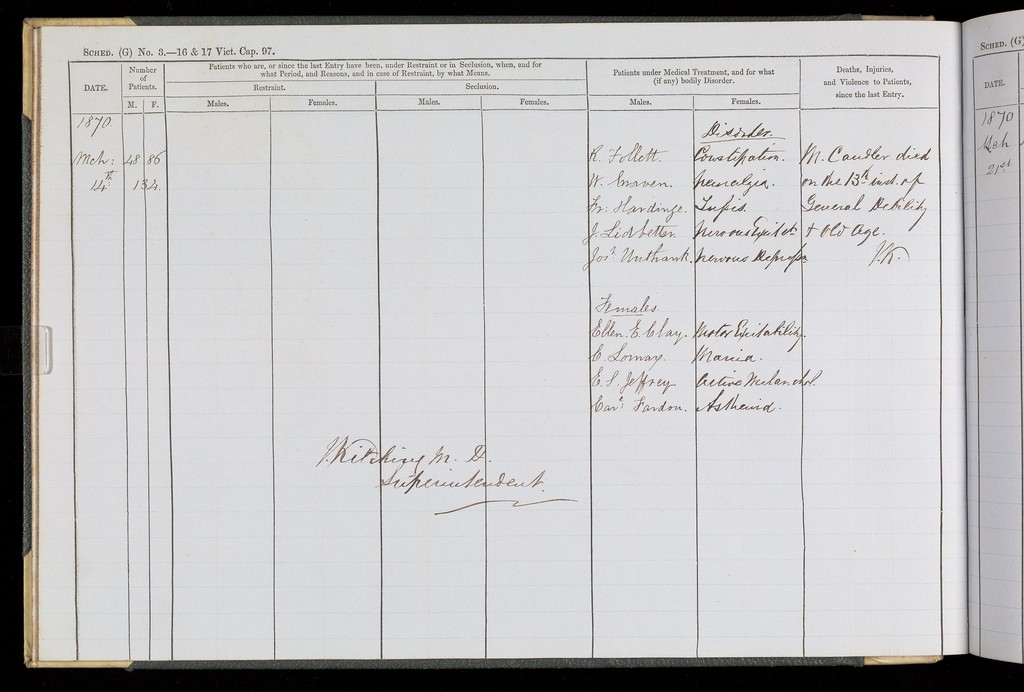 SCHED. (G) No. 3.—16 & 17 Vict. Cap. 97.
DATE.
Number
of
Patients.
M. F.
Patients who are, or since the last Entry have been, under Restraint or in Seclusion, when, and for
what Period, and Reasons, and in case of Restraint, by what Means.
Restraint. Seclusion.
Males. Females. Males. Females.
Patients under Medical Treatment, and for what
(if any) bodily Disorder.
Males. Females.
Deaths, Injuries,
and Violence to Patients,
since the last Entry.
1870
Disorder.
Mch: 48 86 R. Follett. Constipation. M. Candler died
14th 134. W. Craven. Neuralgia. on the 13th inst. of
Fr: Hardinge. General Debility
J. Lidbetter. Nervous & Old Age.
Josh Unthank. Nervous J.K.
Females.
Ellen. E. Clay. Motor Excitability.
C. Lomax. Mania.
E. S. Jeffrey Active Melanchol.
Care: Fardon. Asthenia.
J. Kitching M. D.
Superintendent.
SCHED. (G)
DATE.
1870
Mch
21st